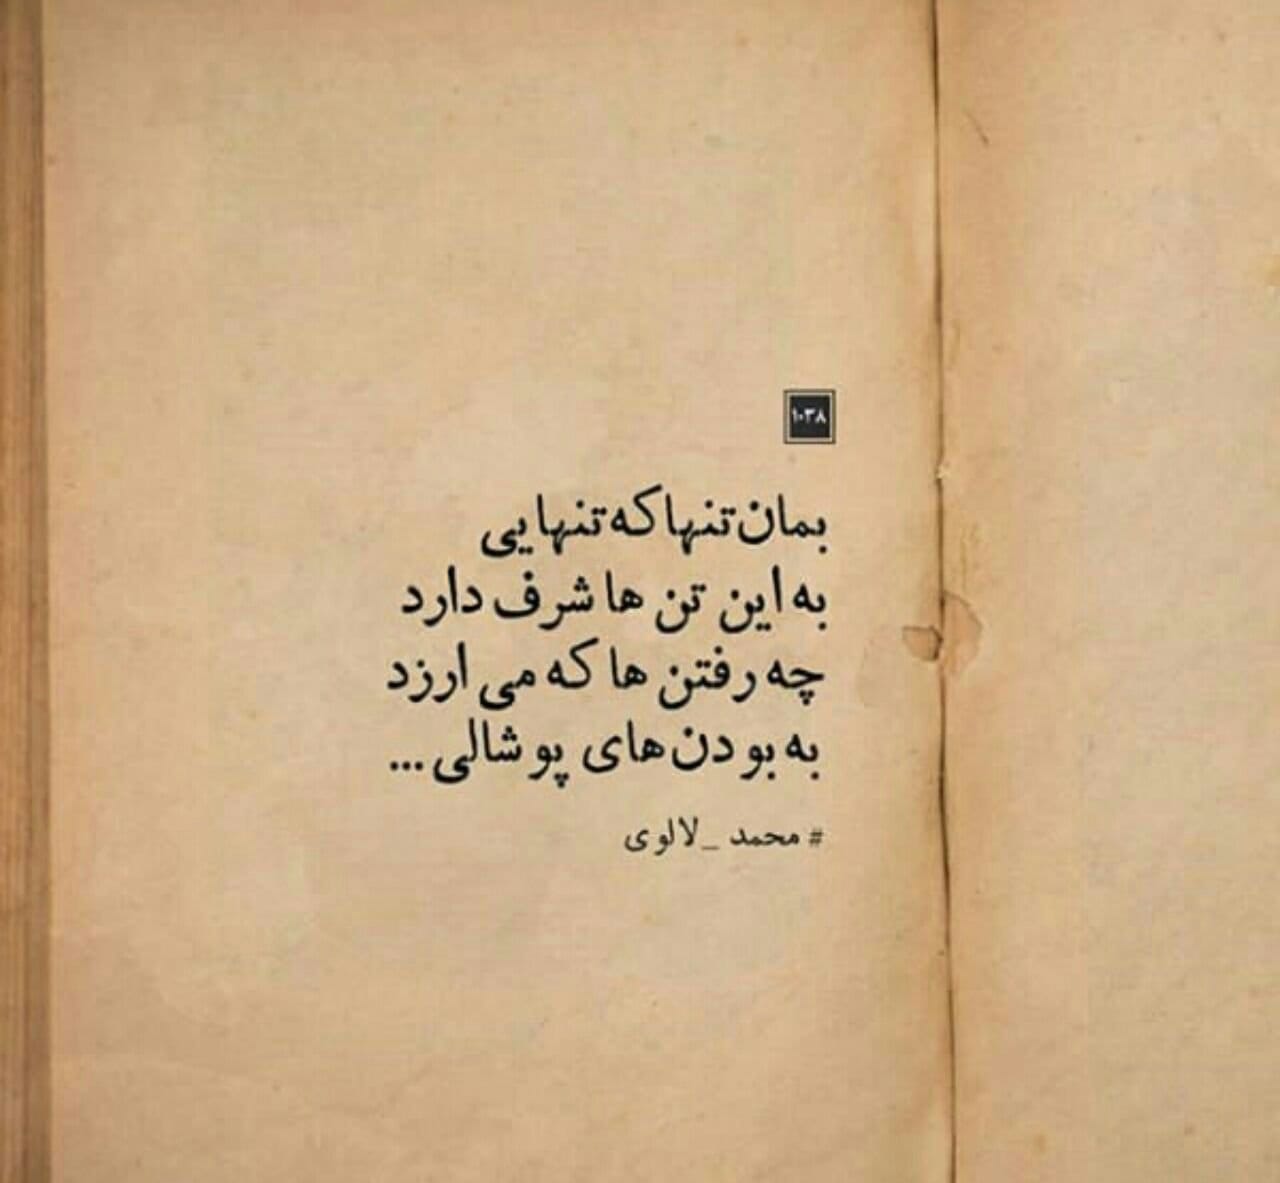 ۱۰۳۸
بمان تنها که تنهایی
به این تن ها شرف دارد
چه رفتن ها که می ارزد
به بودن های پوشالی...
# محمد _لالوی